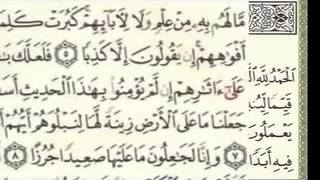 مَّا لَهُم بِهِۦ مِنْ عِلْمٍ وَلَا لِآبَآئِهِمْ كَبُرَتْ كَلِمَ
أَفْوَٰهِهِمْ إِن يَقُولُونَ إِلَّا كَذِبًا ٥ فَلَعَلَّكَ بَـ
عَلَىٰٓ ءَاثَـٰرِهِمْ إِن لَّمْ يُؤْمِنُوا۟ بِهَـٰذَا ٱلْحَدِيثِ أَسَفًا
جَعَلْنَا مَا عَلَى ٱلْأَرْضِ زِينَةً لَّهَا لِنَبْلُوَهُمْ أَيُّهُمْ أَ
٧ وَإِنَّا لَجَـٰعِلُونَ مَا عَلَيْهَا صَعِيدًا جُرُزًا ٨
ٱلْحَمْدُ لِلَّهِ ٱلَّ
قَيِّمًا لِّيُنذِ
يَعْمَلُونَ
فِيهِ أَبَدًا